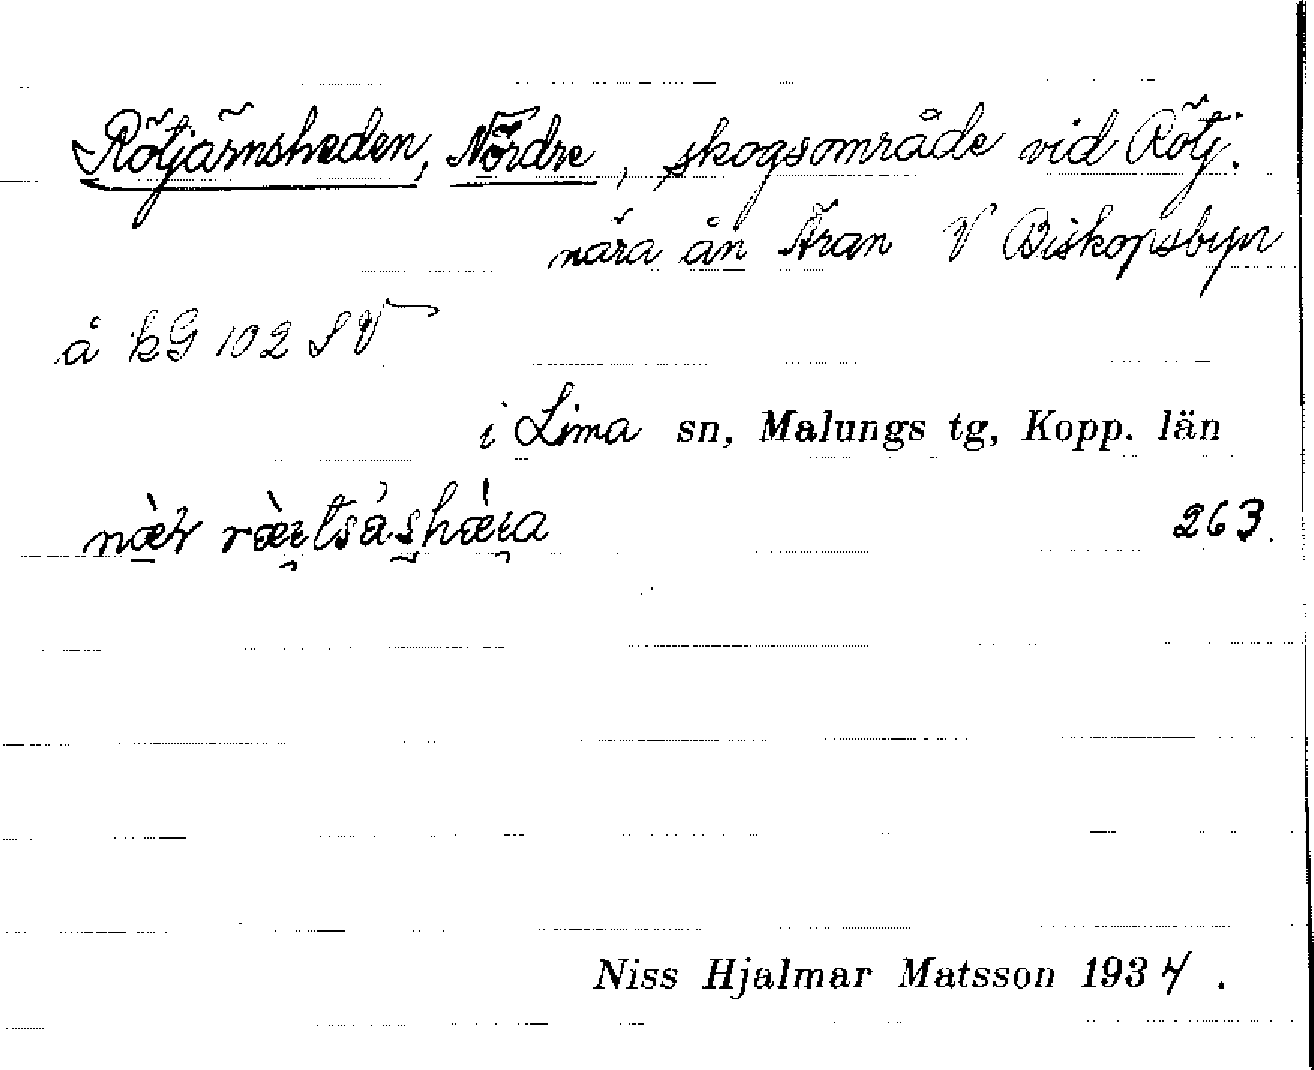 Rötjärnsheden, Nördre, skogsområde vid Rötj.
nära ån Äran V Biskopsbyn
å kG 102 SV
i Lima sn, Malungs tg, Kopp. län
263.
Niss Hjalmar Matsson 1934.